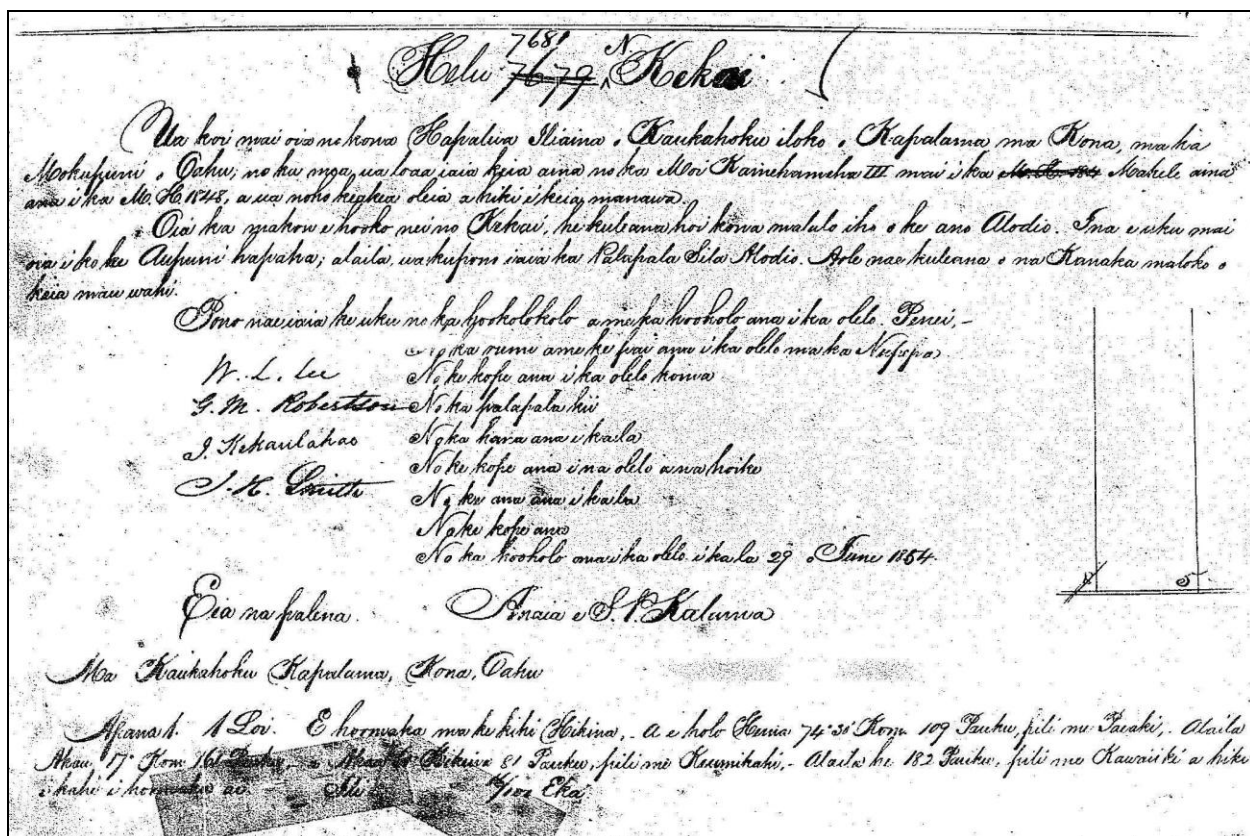 7681
Helu 7679 N. Kekai
Ua koi mai oia no kona Hapalua Iliaina o Kaukahoku iloko o Kapalama ma Kona, ma ka
Mokupuni o Oahu, no ka mea, ua loaa iaia keia aina no ka Moi Kamehameha III mai i ka M. H. 184 Mahele aina
ana i ka M. H. 1848, a ua noho keakea oleia a hiki i keia manawa.
Oia ka makou e hooko nei no Kekai, he kuleana hoi kona malalo iho o ke ano Alodio. Ina e uku mai
oia i ko ke Aupuni hapaha; alaila, ua kupono iaia ka Palapala Sila Alodio. Aole nae kuleana o na Kanaka maloko o
keia mau wahi.
Pono nae iaia ke uku no ka hookolokolo a me ka hooholo ana i ka olelo. Penei,-
No ka rumi a me ke pai ana i ka olelo ma ka Nupepa
W. L. Lee No ke kope ana i ka olelo kona
G. M. Robertson No ka palapala kii
J. Kekaulahao No ka ana i ka la
J. H. Smith No ke kope ana i na olelo a na hoike
No ke ana ana i ka la
No ke kope ana
No ka hooholo ana i ka olelo i ka la 29 o June 1854.
5
Eia na palena. Anaia e S. P. Kalama
Ma Kaukahoku Kapalama, Kona, Oahu
Apana 1. 1 Loi. E hoomaka ma ke kihi Hikina,- A e holo Hema 74° 30' Kom. 109 Pauku, pili me Paaki,- Alaila
Akau 17° Kom. 161 Pauku,- Akau Hikina 81 Pauku, pili me Keumikahi,- Alaila he 182 Pauku, pili me Kawaiiki a hiki
i kahi i hoomaka ai. Eka